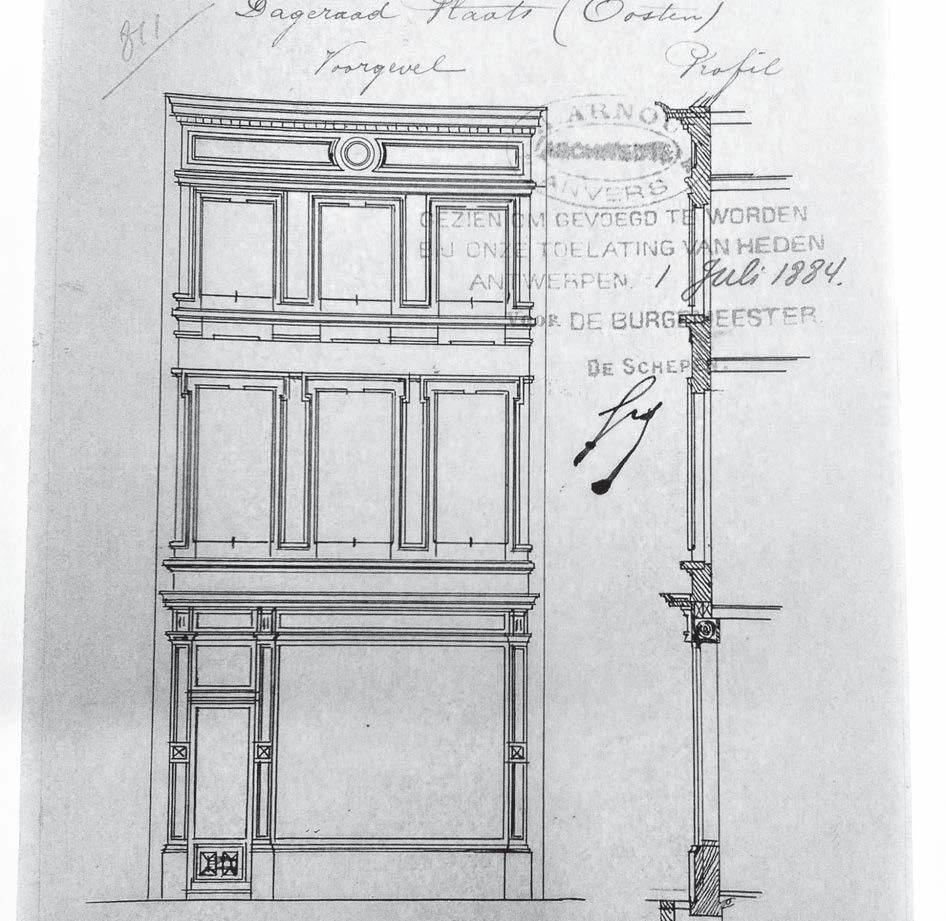 811
Dageraad Plaats (Oosten)
Voorgevel Profil
ARNOU
ARCHITECTE
ANVERS
GEZIEN OM GEVOEGD TE WORDEN
BIJ ONZE TOELATING VAN HEDEN
ANTWERPEN, 1 Juli 1884.
VOOR DE BURGEMEESTER.
DE SCHEPEN.